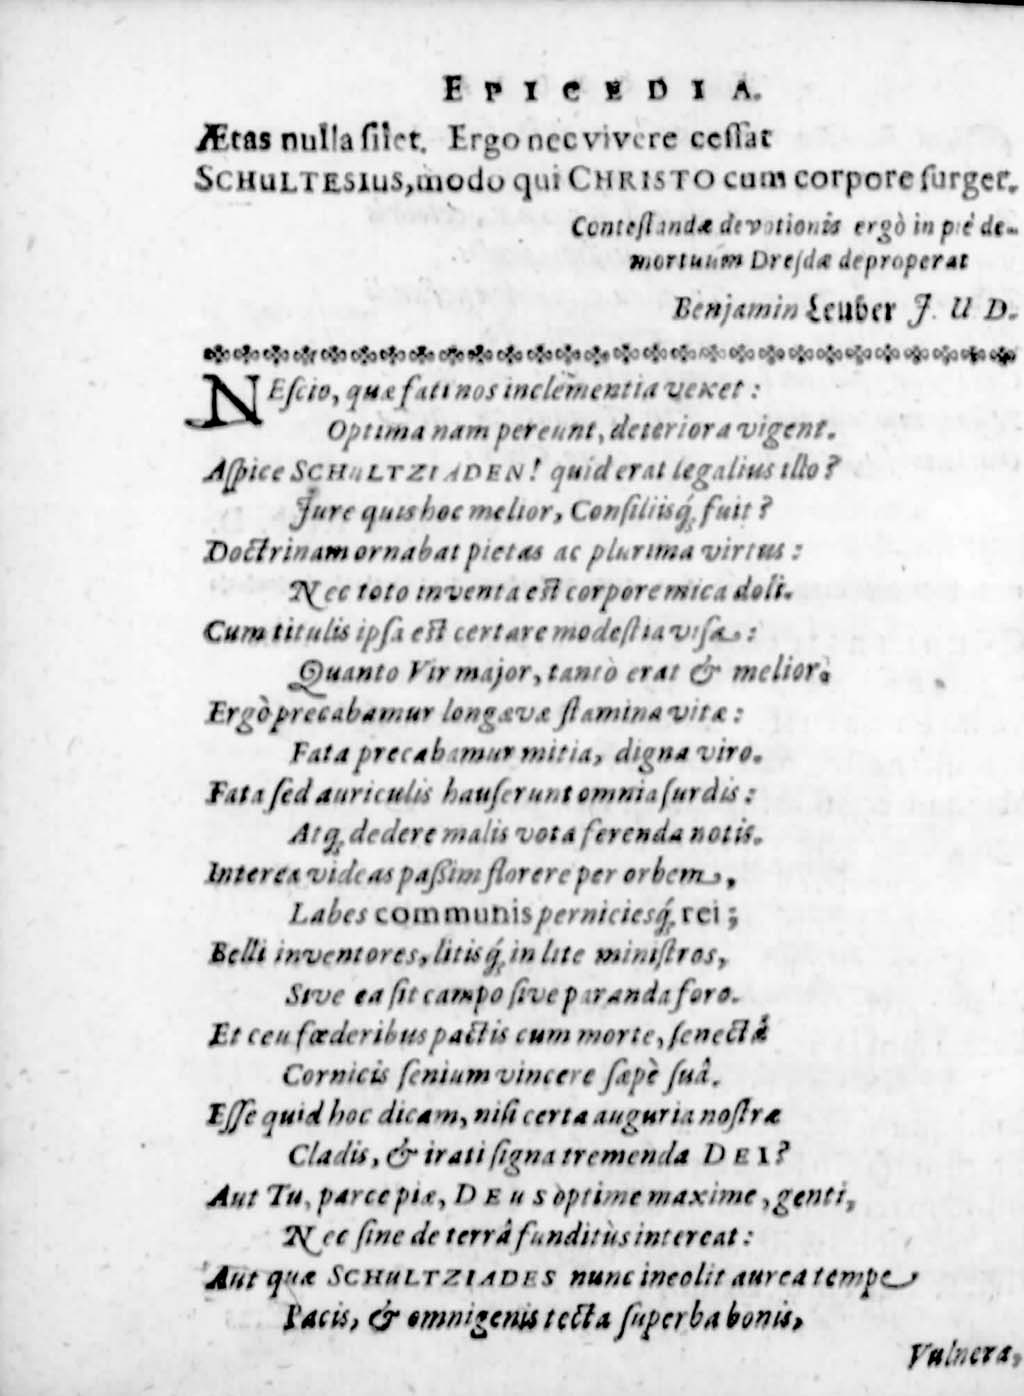 EPICEDIA.
Ætas nulla ſilet. Ergo nec vivere ceſſat
SCHuLTESIus, modo qui CHRISTO cum corpore ſurget.
Conteſtandæ devotionis ergò in piè de-
mortuum Dreſdæ deproperat
Benjamin Leuber J. U D.
NEſcio, quæ fati nos inclementia vexet:
Optima nam pereunt, deteriora vigent.
Aſpice SCHuLTZIADEN! quid erat legalius illo?
Jure quis hoc melior, Conſiliisq́; fuit?
Doctrinam ornabat pietas ac plurima virtus:
Nec toto inventa eſt corpore mica doli.
Cum titulis ipſa eſt certare modeſtia viſa:
Quanto Vir major, tantò erat & melior.
Ergò precabamur longævæ ſtamina vitæ:
Fata precabamur mitia, digna viro.
Fata ſed auriculis hauſerunt omnia ſurdis:
Atq́; dedere malis vota ferenda notis.
Interea videas paſſim florere per orbem,
Labes communis perniciesq́; rei;
Belli inventores, litisq́; in lite miniſtros,
Sive ea ſit campo ſive paranda foro.
Et ceu fœderibus pactis cum morte, ſenectâ
Cornicis ſenium vincere ſæpè ſuâ.
Eſſe quid hoc dicam, niſi certa auguria noſtræ
Cladis, & irati ſigna tremenda DEI?
Aut Tu, parce piæ, DEuS optime maxime, genti,
Nec ſine de terrâ funditùs intereat:
Aut quæ SCHuLTZIADES nunc incolit aurea tempe
Pacis, & omnigenis tecta ſuperba bonis,
Vulnera,